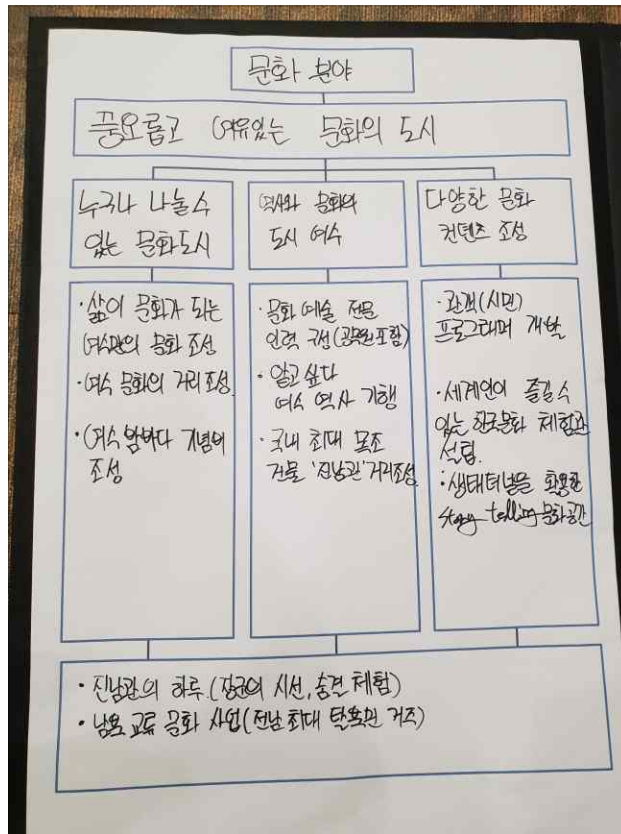 문화 분야
풍요롭고 여유있는 문화의 도시
누구나 나눌 수
있는 문화도시
역사와 문화의
도시 여수
다양한 문화
컨텐츠 조성
·삶이 문화가 되는
여수만의 문화 조성
·여수 문화의 거리 조성.
·여수 밤바다 기념비
조성
·문화 예술 전문
인력 구성(공무원 포함)
·알고 싶다
여수 역사 기행
·국내 최대 목조
건물 '진남관' 거리조성.
·관객(시민)
프로그래머 개발
·세계인이 즐길 수
있는 한국문화 체험관
설립.
·생태터널을 활용한
story telling 문화공간
·진남관의 하루 (장군의 시선, 숨결 체험)
·남북 교류 문화 사업(전남 최대 탈북민 거주)